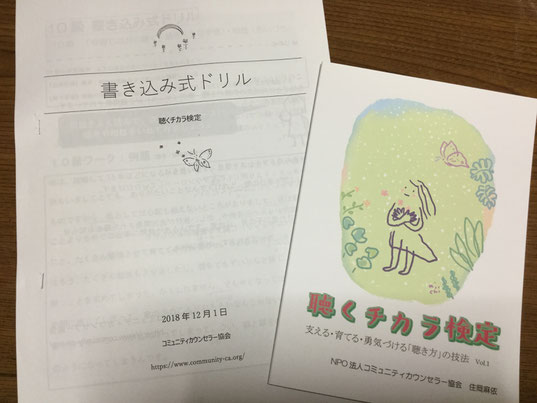 書き込み式ドリル
聴くチカラ検定
2018年12月1日
コミュニティカウンセラー協会
https://www.community-ca.org/
聴くチカラ検定
支える・育てる・勇気づける「聴き方」の技法 Vol.1
NPO法人コミュニティカウンセラー協会 住岡麻依